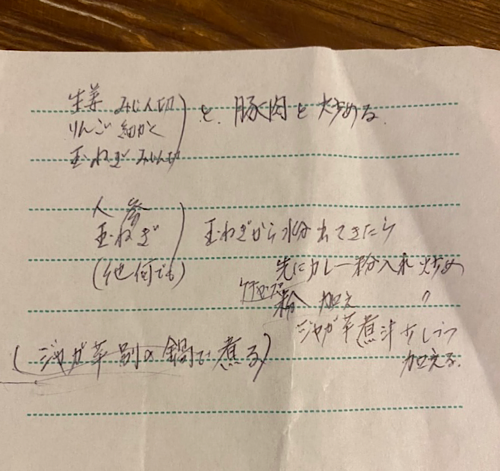 生姜 みじん切
りんご 細かく
玉ねぎ みじん切
と、豚肉を炒める
人参
玉ねぎ
(他何でも)
玉ねぎから水分出てきたら
先にカレー粉入れ炒め
粉 加え 〃
ジャガ芋煮汁少しづつ
加える.
(ジャガ芋別の鍋で煮る)